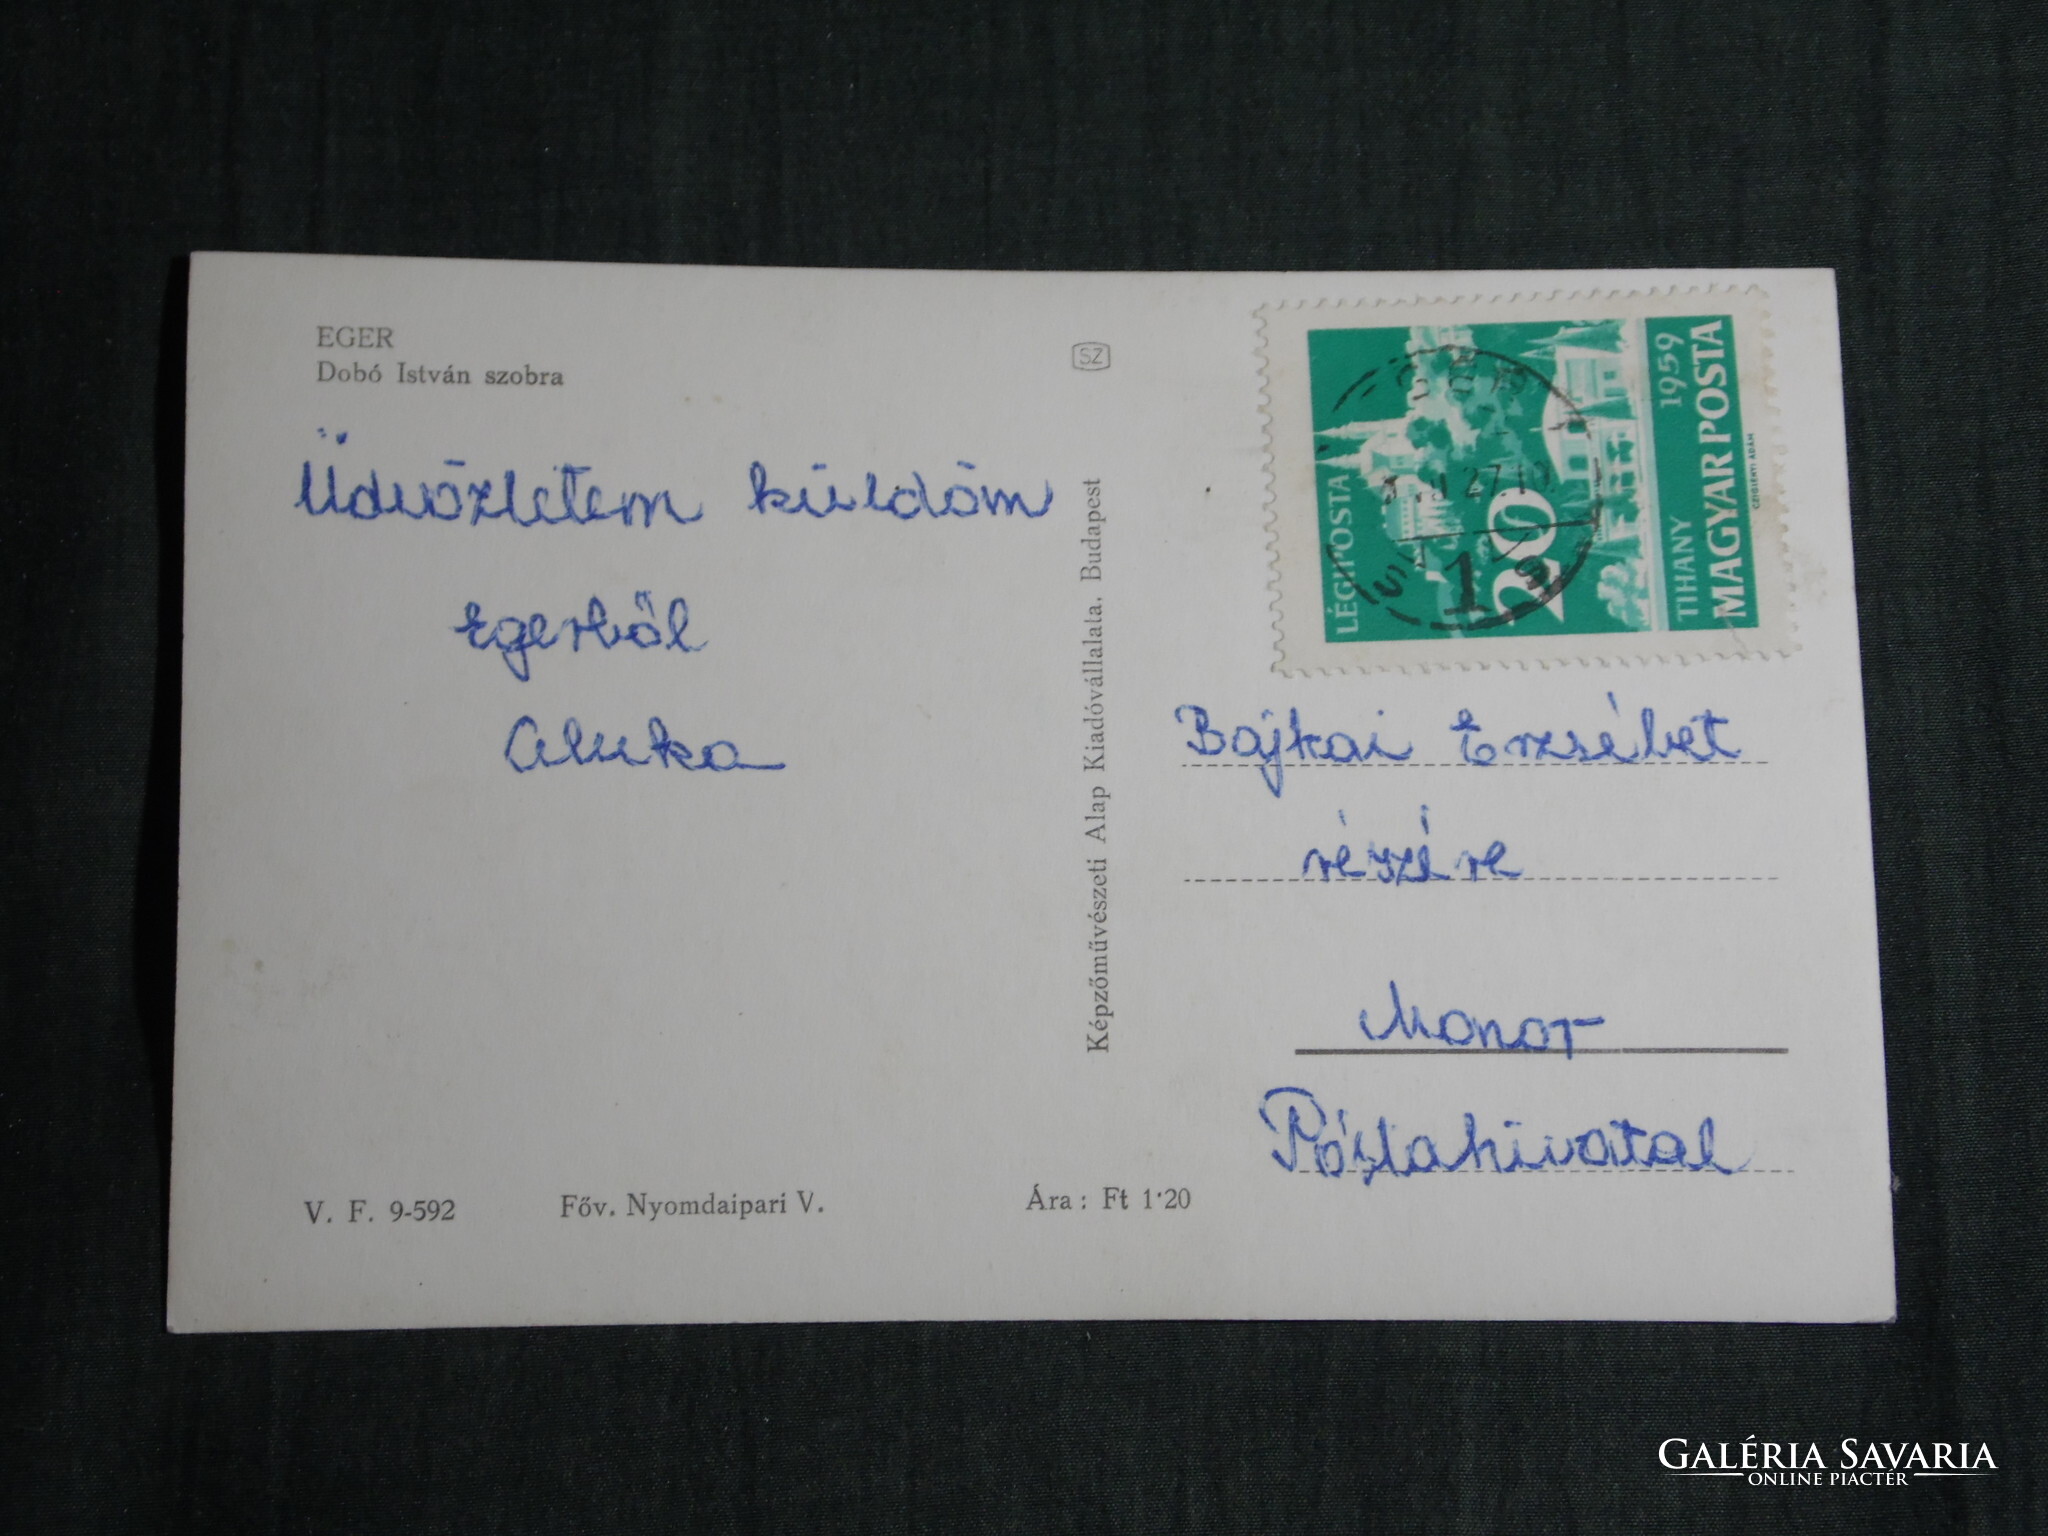 EGER
Dobó István szobra
SZ
Üdvözletem küldöm
Egerből
Aluka
Képzőművészeti Alap Kiadóvállalata, Budapest
V. F. 9-592
Főv. Nyomdaipari V.
Ára: Ft 1·20
LÉGIPOSTA
20
TIHANY 1959
MAGYAR POSTA
CZIGLÉNYI ÁDÁM
27 18
1
Bajkai Erzsébet
részére
Monor
Póstahivatal
GALÉRIA SAVARIA
ONLINE PIACTÉR